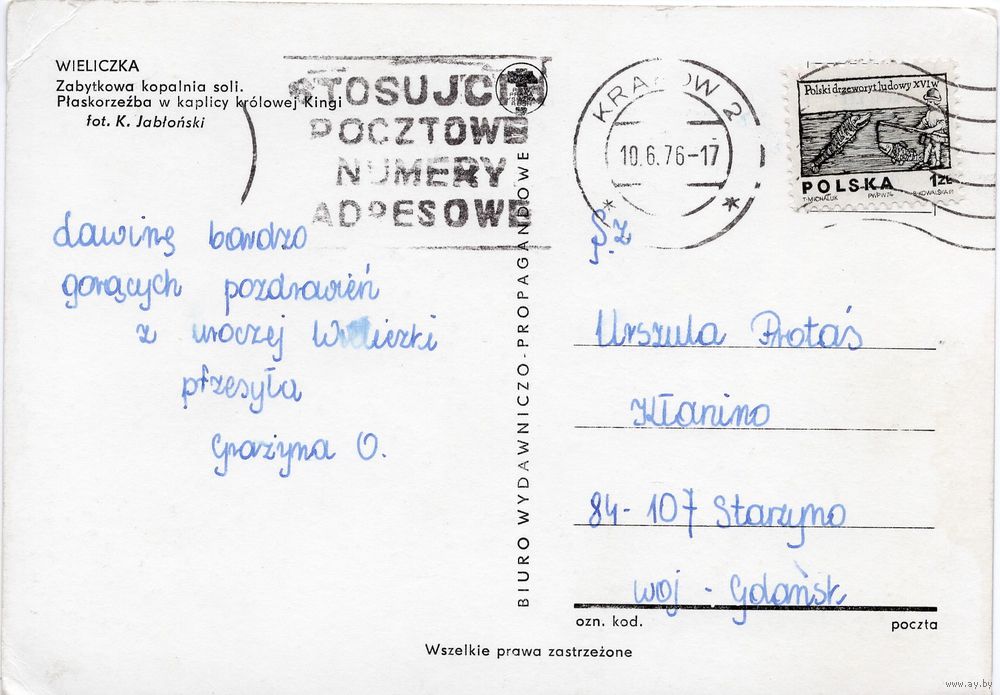 WIELICZKA
Zabytkowa kopalnia soli.
Płaskorzeźba w kaplicy królowej Kingi
fot. K. Jabłoński
STOSUJCIE
POCZTOWE
NUMERY
ADRESOWE
KRAKÓW 2
10.6.76-17
Polski drzeworyt ludowy XVI w
POLSKA 1ZŁ
T. MICHALUK PWPW 74 B. KOWALSKA
lawinę bardzo
gorących pozdrowień
z uroczej Wieliczki
przesyła
Grażyna O.
BIURO WYDAWNICZO-PROPAGANDOWE
Urszula Protaś
Kłanino
84-107 Starzyno
woj - Gdańsk
ozn. kod. poczta
Wszelkie prawa zastrzeżone
www.ay.by